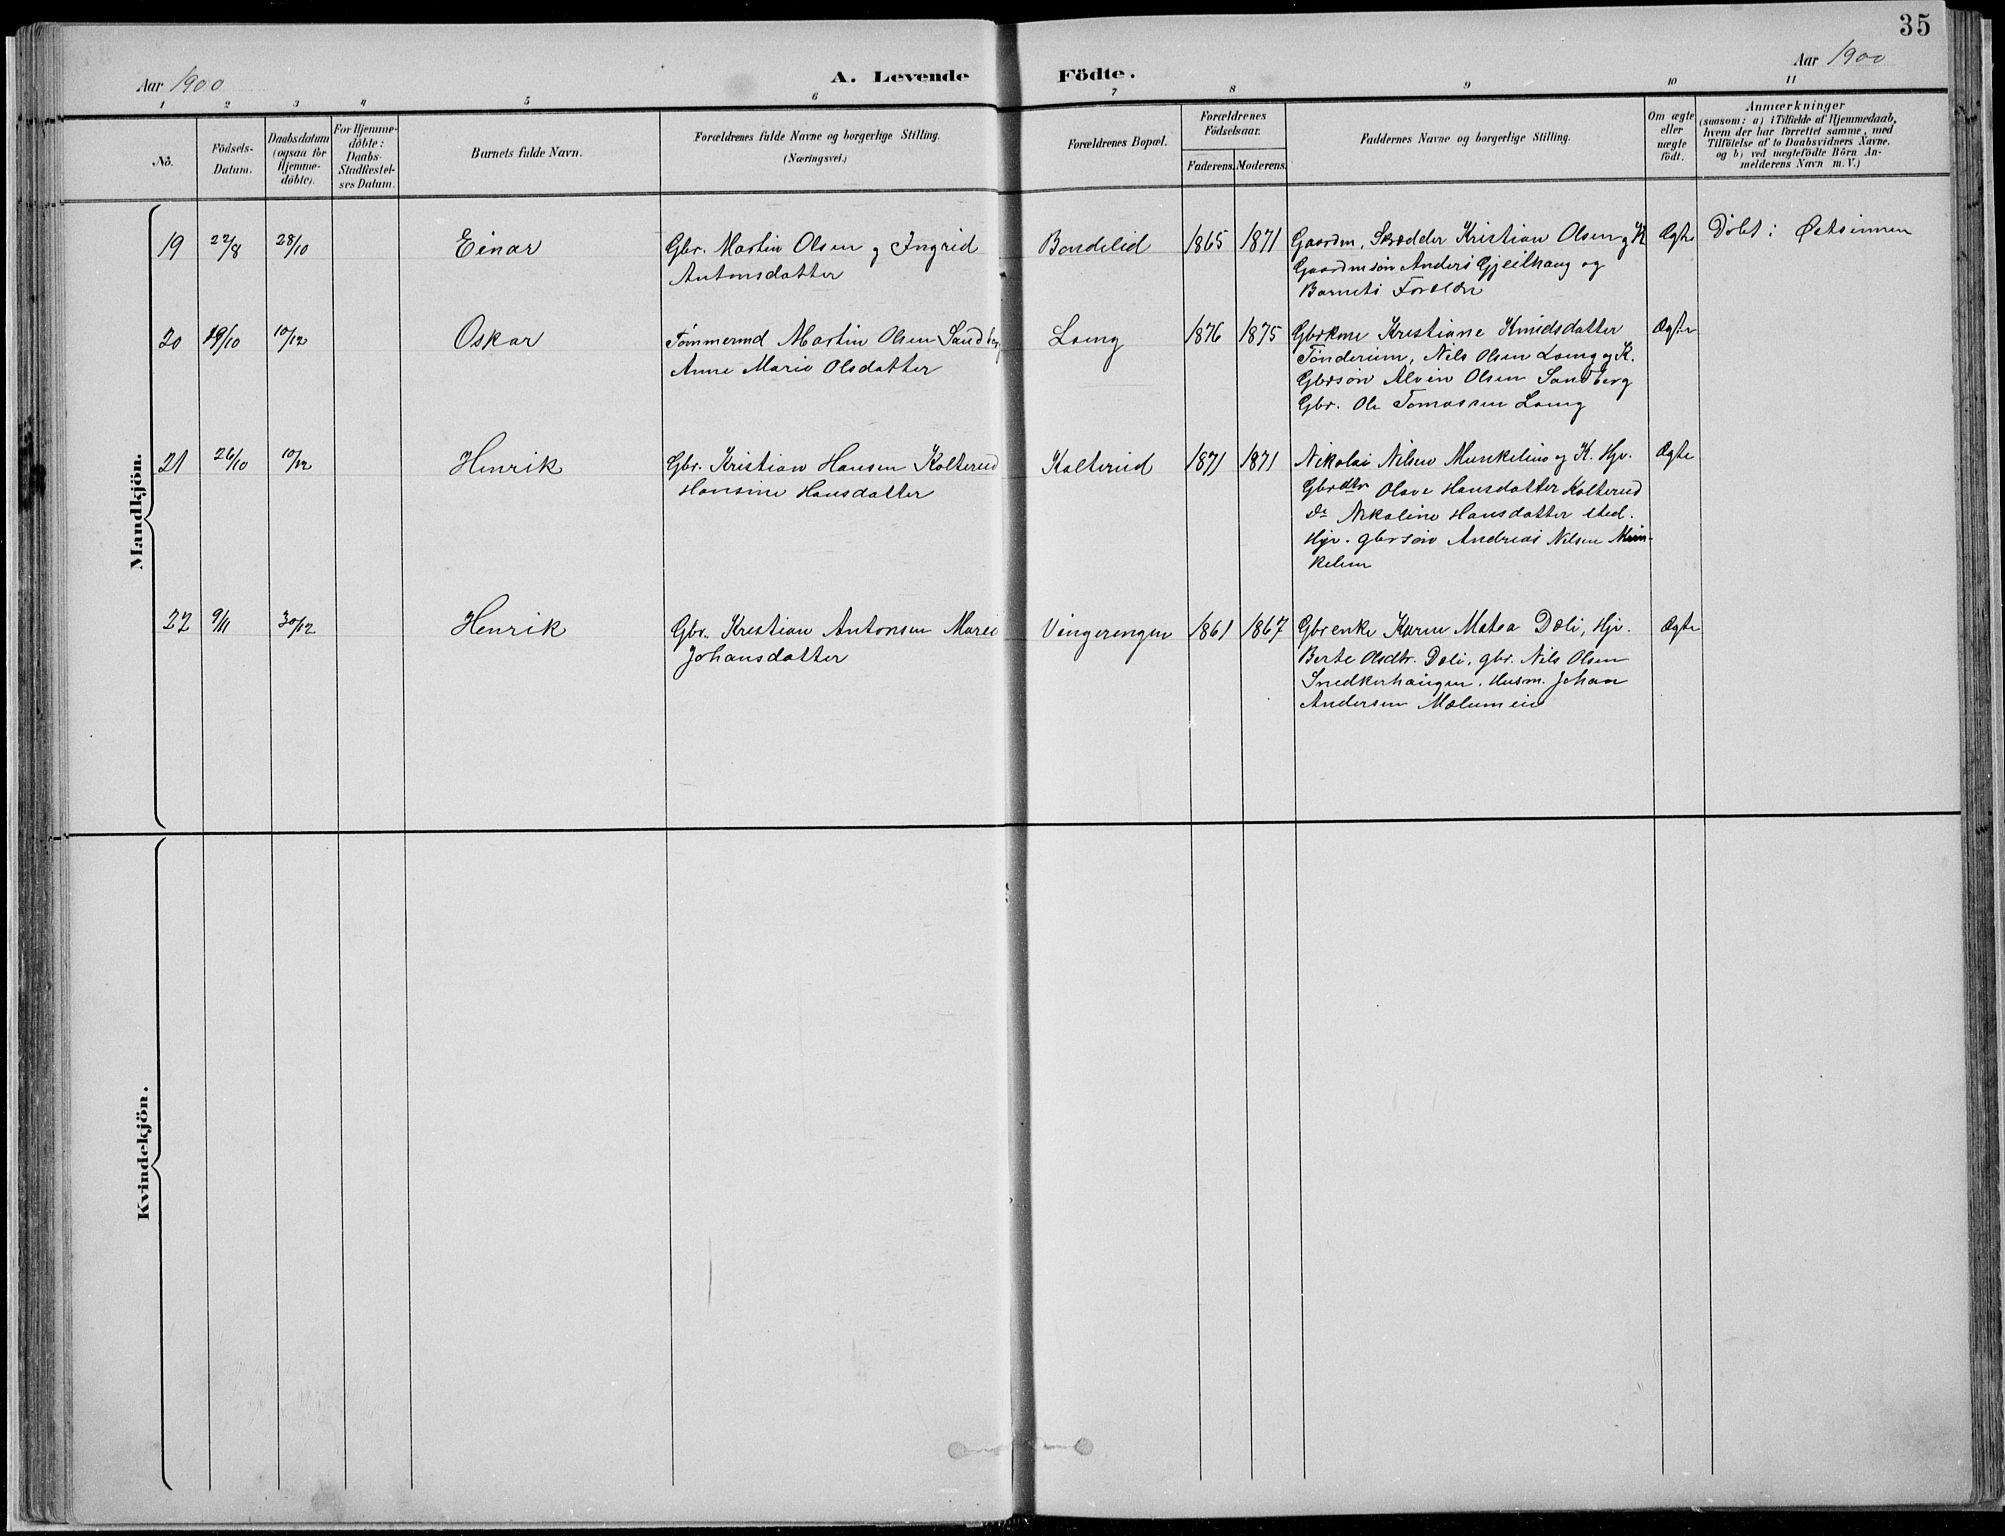 35
Aar 1900
A. Levende Födte.
Aar 1900
1 2 3 4 5 6 7 8 9 10 11
No.
Födsels-
Datum.
Daabsdatum
(ogsaa for
Hjemme-
döbte).
For Hjemme-
döbte:
Daabs-
Stadfæstel-
ses Datum.
Barnets fulde Navn.
Forældrenes fulde Navne og borgerlige Stilling.
(Næringsvei.)
Forældrenes Bopæl.
Forældrenes
Födselsaar.
Faderens. Moderens.
Faddernes Navne og borgerlige Stilling.
Om ægte
eller
uægte
födt.
Anmærkninger
(saasom: a) i Tilfælde af Hjemmedaab,
hvem der har forrettet samme, med
Tilföielse af to Daabsvidners Navne.
og b) ved uægtefödte Börn An-
melderens Navn m. V.)
Mandkjön.
19 22/8 28/10 Einar Gbr. Martin Olsen og Ingrid Bondelid 1865 1871 Gaardm, Skrædder Kristian Olsen og K Ægte Döbt i
Antonsdatter Gaardmsön Anders Gjeilhaug og
Barnets Forældre
20 29/10 10/12 Oskar Tömmermd Martin Olsen Sandberg Loeng 1876 1875 Gbrkone Kristiane Knudsdatter Ægte
Anne Marie Olsdatter Nils Olsen Loeng og K.
Gbrsön Alvin Olsen Sandberg
Gbr. Ole Tomassen Loeng
21 26/10 10/12 Henrik Gbr. Kristian Hansen Kolterud Kolterud 1871 1871 Nikolai Nilsen Munkelien og K. Hjv. Ægte
Hansine Hansdatter Gbrdtr Olave Hansdatter Kolterud
do Nikoline Hansdatter sted.
Hjv. gbrsön Andreas Nilsen Mun-
kelien
22 9/11 30/12 Henrik Gbr. Kristian Antonsen Marie Vingerengen 1861 1867 Gbrenke Karen Matea Dæli, Hjv. Ægte
Johansdatter Berte Olsdtr. Dæli, gbr. Nils Olsen
Snedkerhaugen. Husm. Johan
Andersen Mælumeie
Kvindekjön.